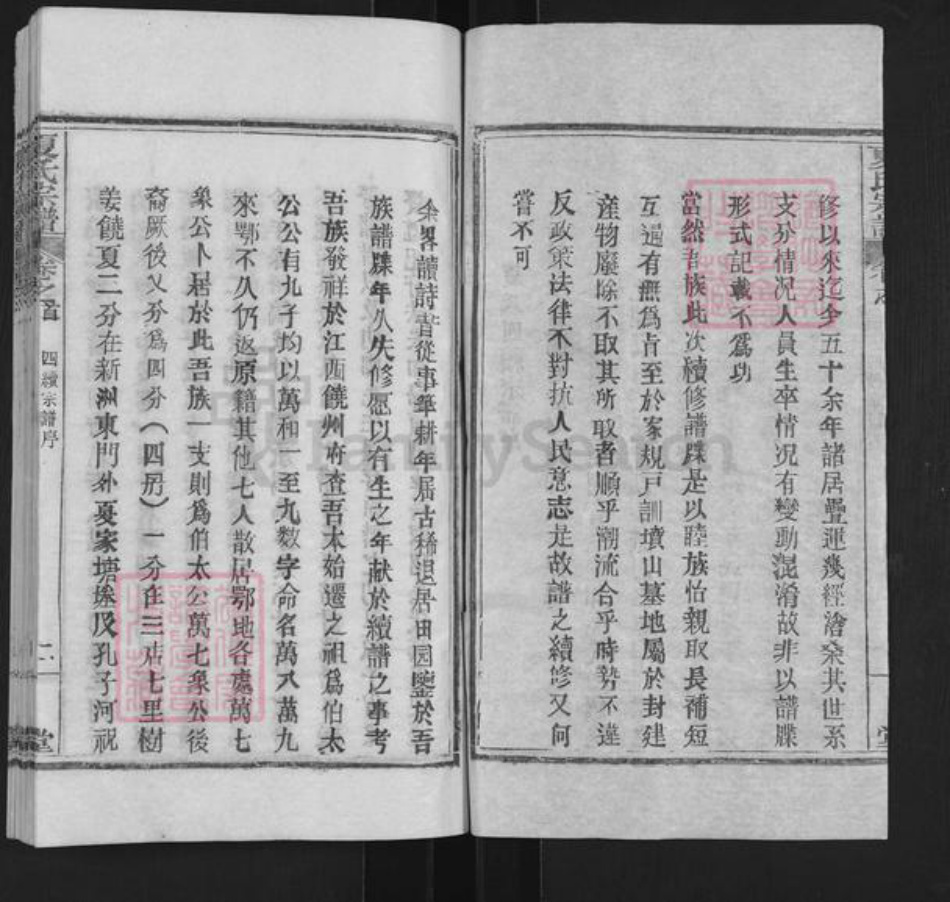 修以來迄今五十余年諸居疊運幾經滄桑其世系
支分情况人員生卒情况有變動混淆故非以譜牒
形式記載不爲功
當然吾族此次續修譜牒是以睦族怡親取長補短
互通有無爲旨至於家規戸訓墳山墓地屬於封建
産物廢除不取其所取者順乎潮流合乎時勢不違
反政策法律不對抗人民意志是故譜之續修又何
嘗不可
余畧讀詩書從事筆耕年届古稀退居田园鑒於吾
族譜牒年久失修愿以有生之年献於續譜之事考
吾族發祥於江西饒州府查吾本始遷之祖爲伯太
公公有九子均以萬和一至九数字命名萬八萬九
來鄂不久仍返原籍其他七人散居鄂地各處萬七
象公卜居於此吾族一支則爲伯太公萬七象公後
裔厥後又分爲四分（四房）一分在三店七里樹
姜饒夏二分在新洲東門外夏家塘垸及孔子河祝
夏氏宗譜
卷之首
四續宗譜序
二
堂
夏氏宗譜
堂
FamilySearch